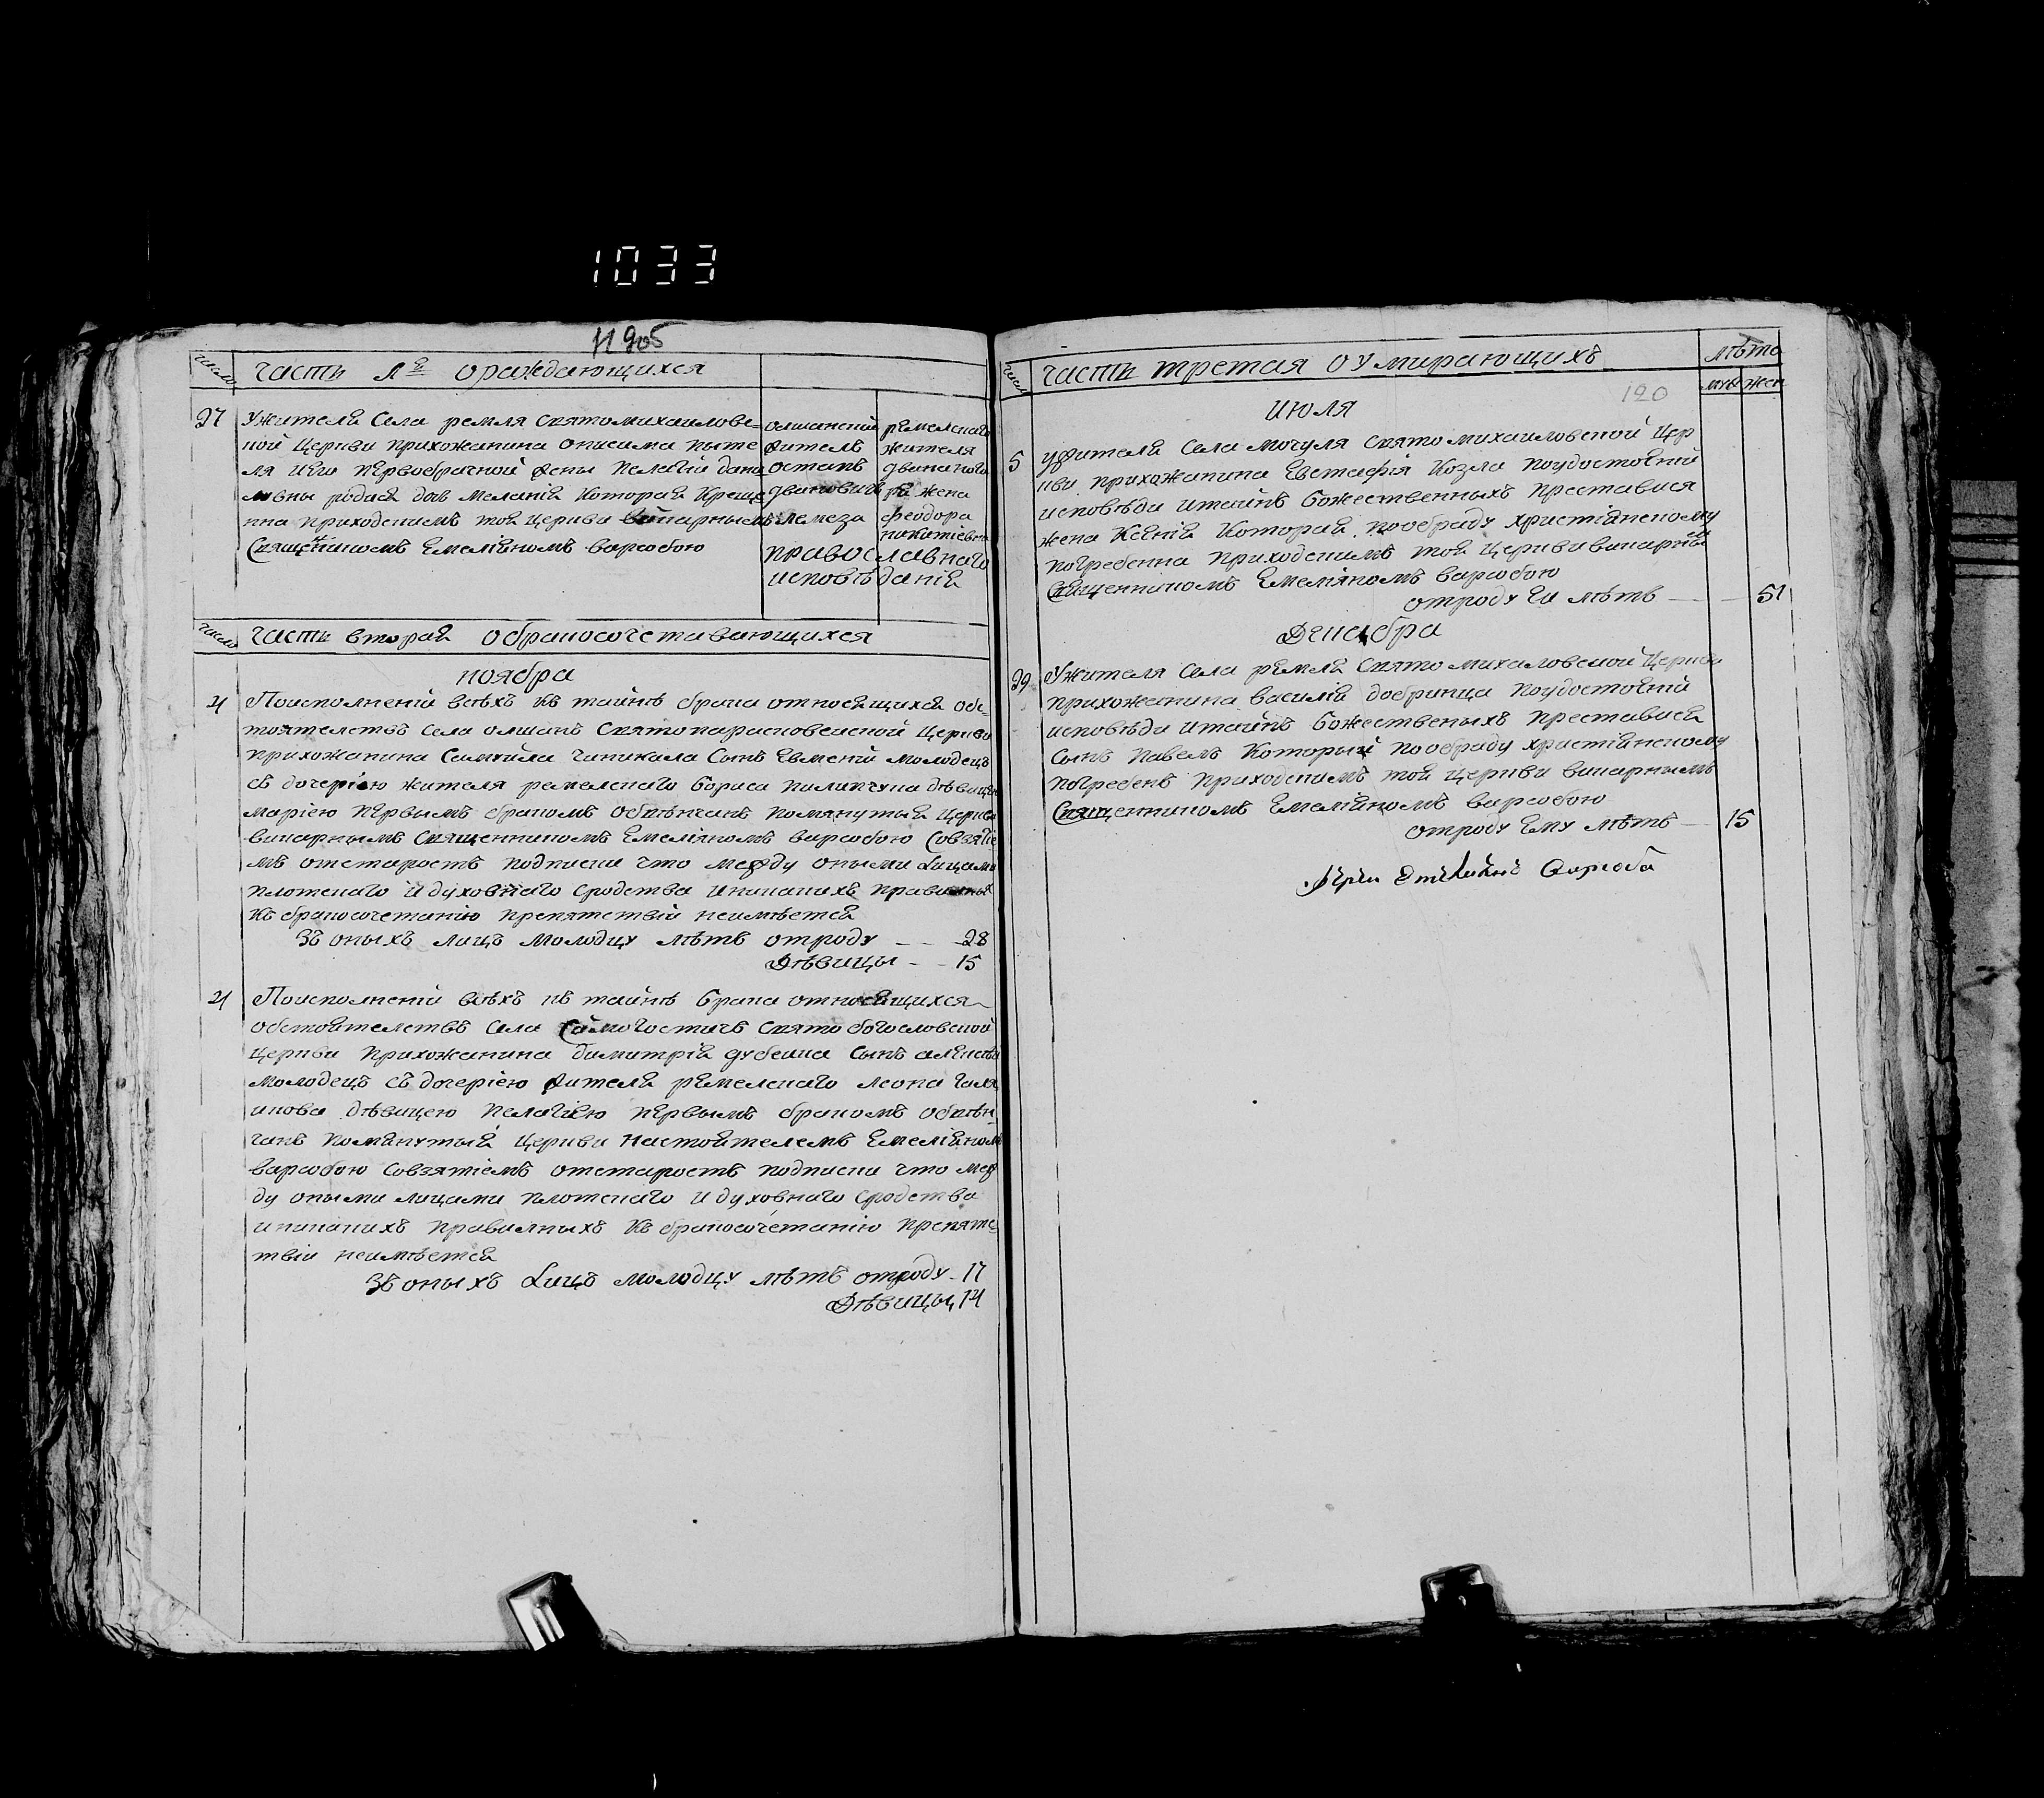 1033
11905
число
часть 1я ораждающихся
27
Ужителя Села ремля Святомихаилове-
кой Церкви прихожанина Онисима
ля иего первобрачной жены Пелагіи дани
ловны родися доч Меланія Которая Креще
нна приходскимъ той церкви викарнымъ
Священикомъ Емеліяномъ варивобою
олшанскій
житель
остапъ
двинского
жителя
жена
феодора
православнаго
исповѣданія
число часть вторая обракосочетавающихся
ноября
4
Поисполненій всѣхъ къ тайнѣ брака относящихся обс-
тоятелствъ Села олшанъ Святопарасковеиской Церкви
прихожанина Самуила Сынъ Евменій молодецъ
съ дочерію жителя ремелского Бориса дѣвицею
Маріею первымъ бракомъ обвѣнчанъ помянутыя Церкви
викарнымъ Священникомъ Емеліяномъ Совзятіе
мъ отстаростъ подписки что между оными Лицами
плотскаго и духовнаго сродства иникакихъ
къ бракосочетанію препятствій неимѣется
Зъ оныхъ лицъ молодцу лѣтъ отроду - - 28
Дѣвицы - - 15
21
Поисполненій всѣхъ къ тайнѣ брака относящихся
обстоятелствъ Села Свято богословской
Церкви прихожанина димитрія Сынъ алексѣй
молодецъ съ дочеріею жителя ремелскаго Леона
дѣвицею Пелагіею первымъ бракомъ обвѣн
чанъ помянутыя Церкви настоятелемъ Емеліяномъ
совзятіемъ отстаростъ подписки что меж
ду оными лицами плотскаго и духовнаго сродства
иникакихъ правилныхъ къ бракосочетанію препятс-
твій неимѣется
Зъ оныхъ Лицъ молодцу лѣтъ отроду - 17
Дѣвицы 14
число
часть третая о умирающихъ
лѣта
муж жен
120
июля
5
ужителя Села Мочуля Свято михаиловской Цер
кви прихожанина Евстафія Козла поудостоеній
исповѣди итайнъ божественныхъ преставися
жена Ксенія Которая пообряду христіянскому
погребенна приходскимъ той церкви викарнымъ
Священникомъ Емеліяномъ
отроду Ей лѣтъ - - 51
Декабра
29
Ужителя Села ремля Свято михаловской Церкви
прихожанина василія добринца поудостоеній
исповѣди итайнъ божественыхъ преставися
Сынъ Павелъ Который пообряду христіянскому
погребенъ приходскимъ той церкви викарнымъ
Священникомъ Емеліяномъ
отроду Ему лѣтъ - 15